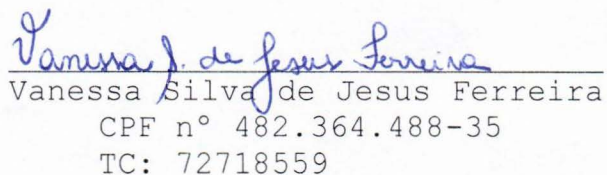 Vanessa S. de Jesus Ferreira
Vanessa Silva de Jesus Ferreira
CPF nº 482.364.488-35
TC: 72718559